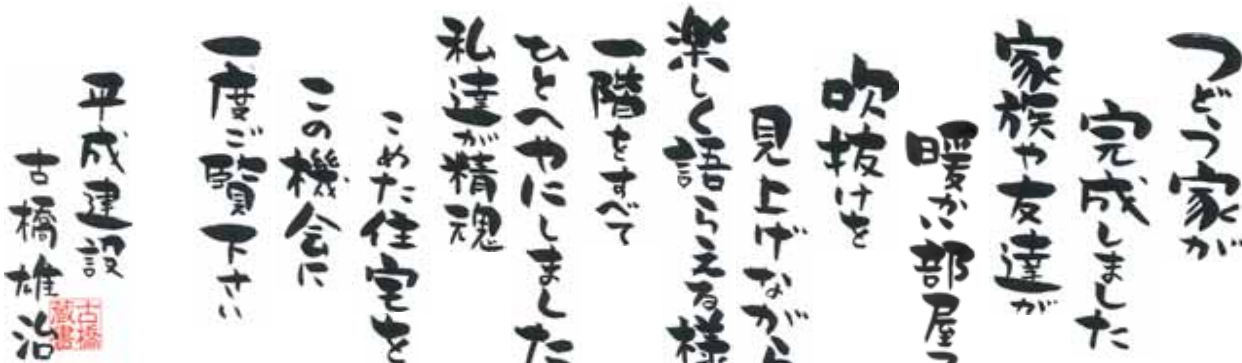 つどう家が
完成しました
家族や友達が
暖かい部屋で
吹抜けを
見上げながら
楽しく語らえる様
一階をすべて
ひとへやにしました
私達が精魂
こめた住宅を
この機会に
一度ご覧下さい
平成建設
古橋雄治
古橋
蔵書